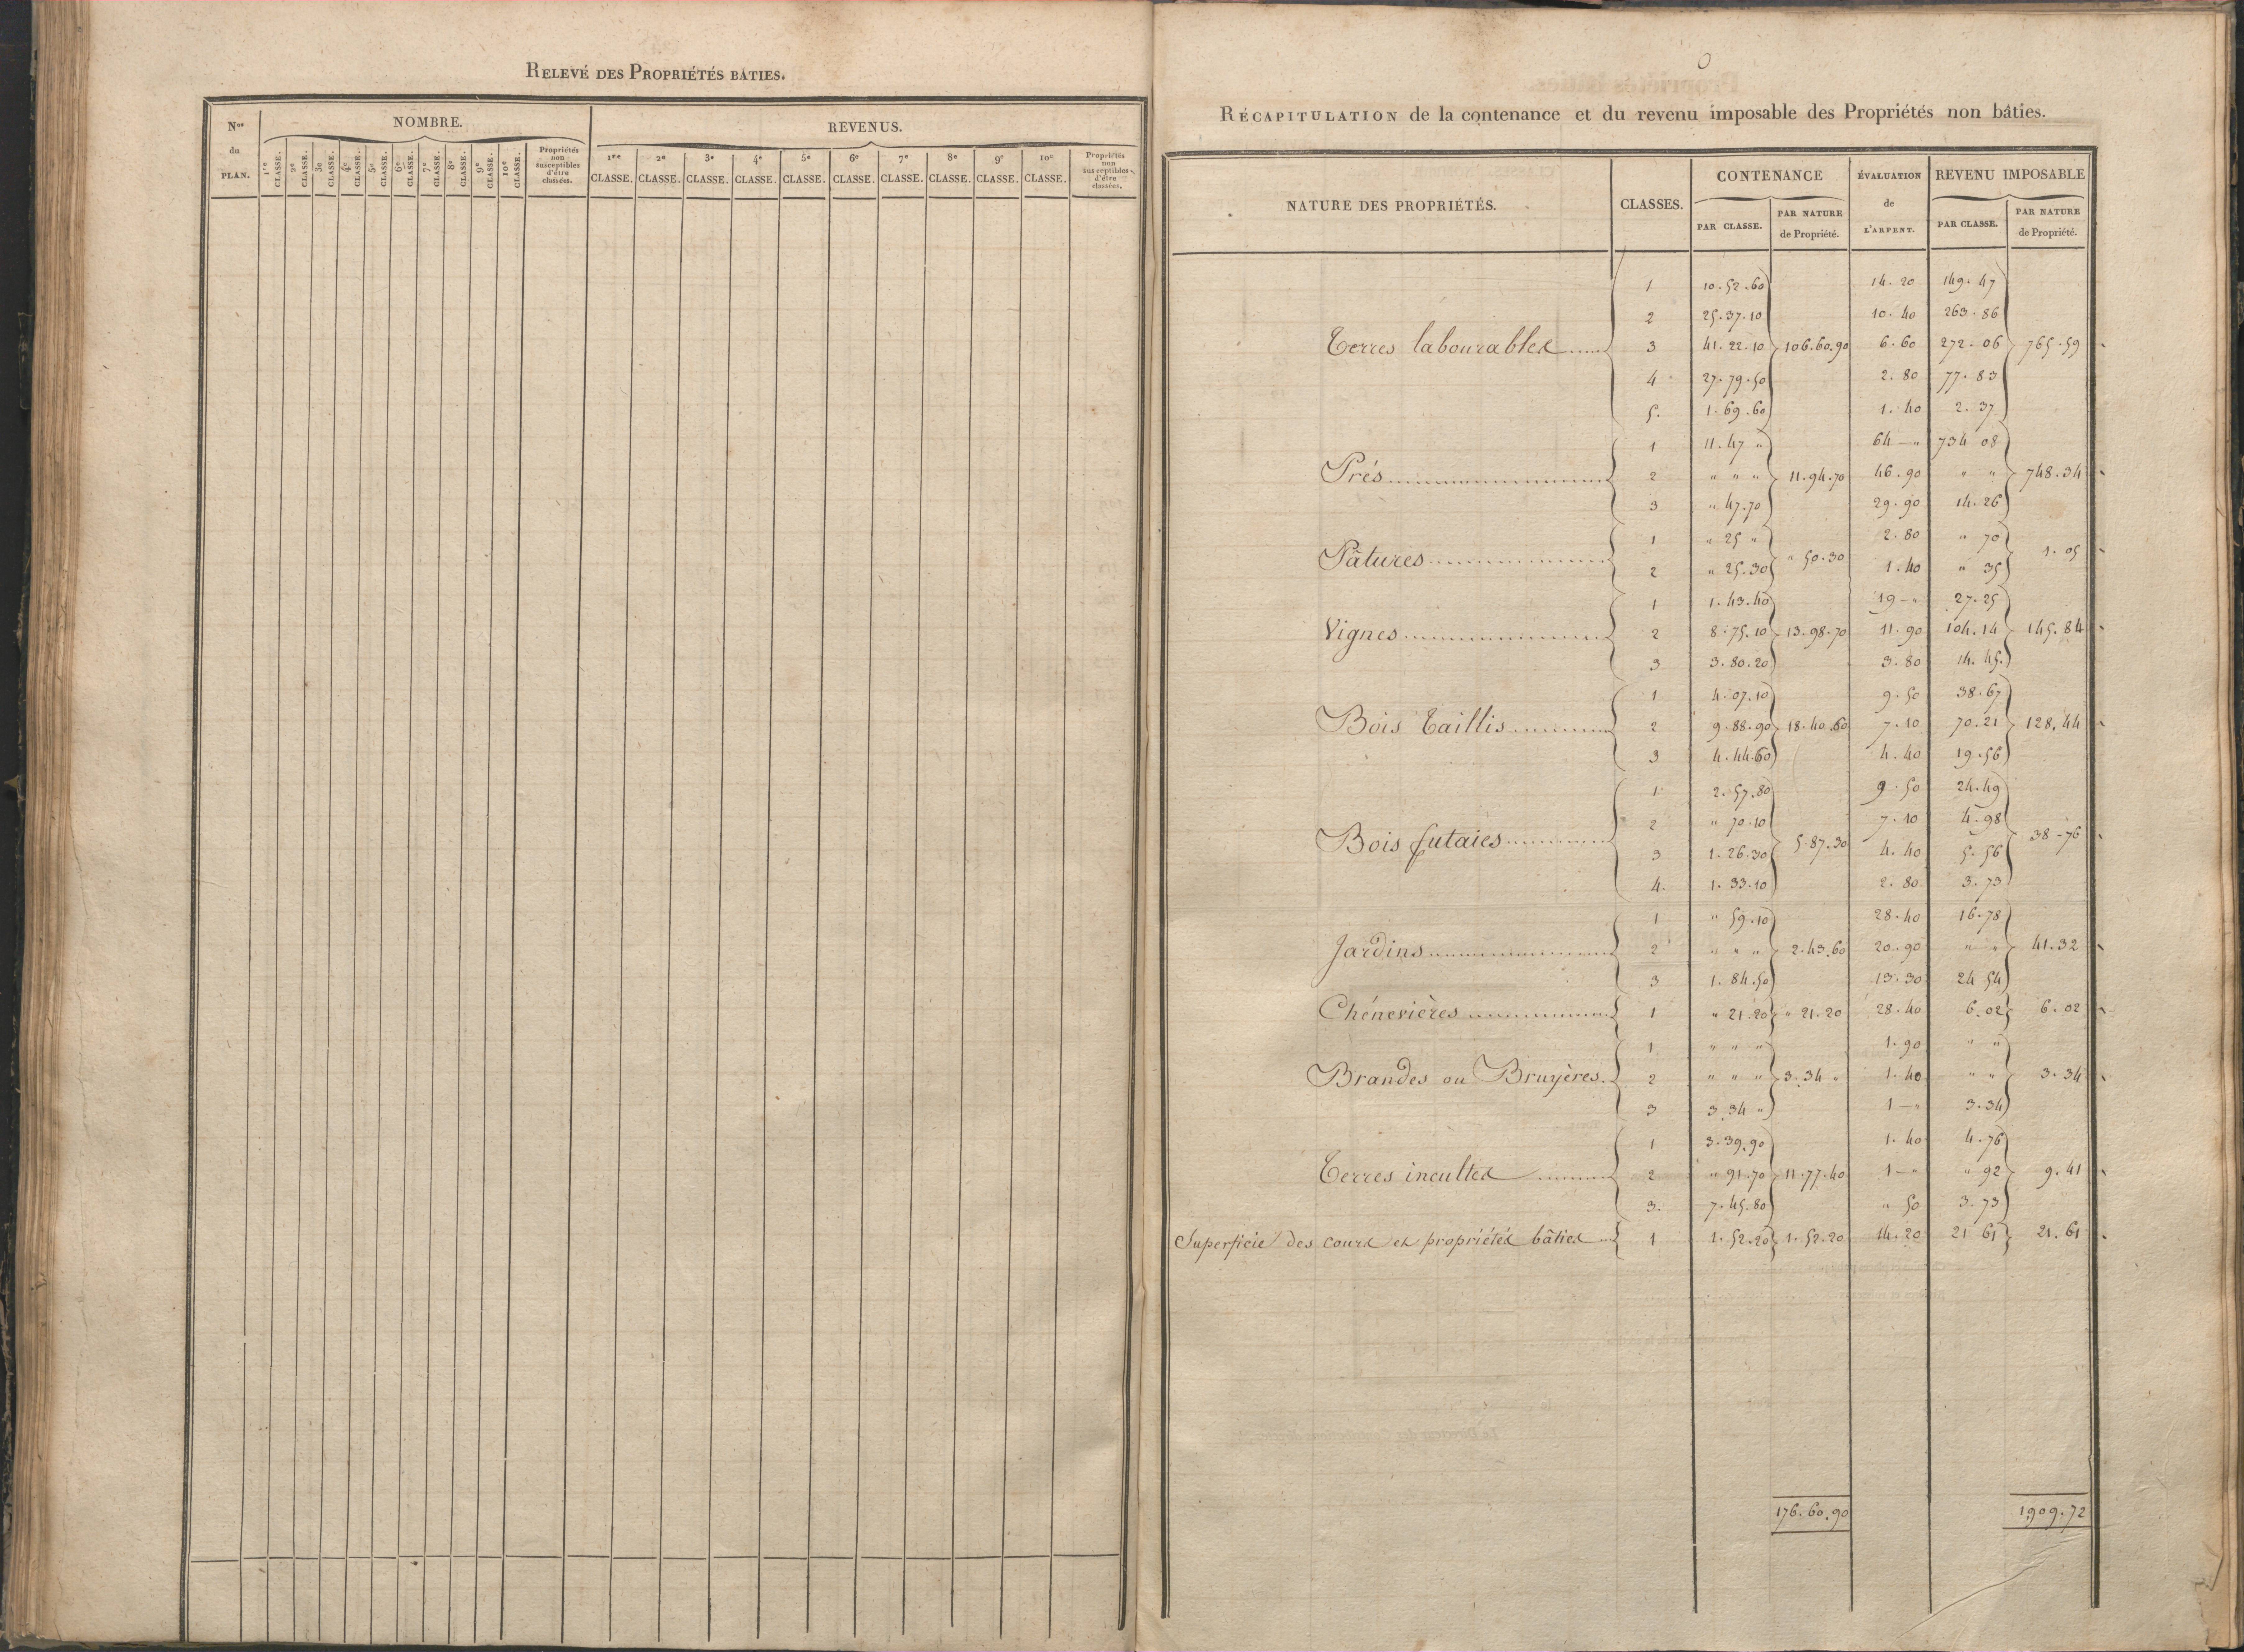 RELEVÉ DES PROPRIÉTÉS BÂTIES.
Nos du PLAN.
NOMBRE.
1re CLASSE. 2e CLASSE. 3e CLASSE. 4e CLASSE. 5e CLASSE. 6e CLASSE. 7e CLASSE. 8e CLASSE. 9e CLASSE. 10e CLASSE.
Propriétés non susceptibles d'être classées.
REVENUS.
1re CLASSE. 2e CLASSE. 3e CLASSE. 4e CLASSE. 5e CLASSE. 6e CLASSE. 7e CLASSE. 8e CLASSE. 9e CLASSE. 10e CLASSE.
Propriétés non susceptibles d'être classées.
0
RÉCAPITULATION de la contenance et du revenu imposable des Propriétés non bâties.
NATURE DES PROPRIÉTÉS. CLASSES. CONTENANCE ÉVALUATION de L'ARPENT. REVENU IMPOSABLE
PAR CLASSE. PAR NATURE de Propriété. PAR CLASSE. PAR NATURE de Propriété.
1 10.52.60 14.20 149.47
2 25.37.10 10.40 263.86
Terres labourables 3 41.22.10 106.60.90 6.60 272.06 765.59
4 27.79.50 2.80 77.83
5. 1.69.60 1.40 2.37
1 11.47 " 64 — " 734 08
Prés 2 " " " 11.94.70 46.90 " " 748.34
3 " 47.70 29.90 14.26
Pâtures 1 " 25 " " 50.30 2.80 " 70 1.05
2 " 25.30 1.40 " 35
1 1.43.40 19 — " 27.25
Vignes 2 8.75.10 13.98.70 11.90 104.14 145.84
3 3.80.20 3.80 14.45.
1 4.07.10 9.50 38.67
Bois Taillis 2 9.88.90 18.40.60 7.10 70.21 128.44
3 4.44.60 4.40 19.56
1 2.57.80 9.50 24.49
2 " 70.10 7.10 4.98
Bois futaies 5.87.30 38-76
3 1.26.30 4.40 5.56
4. 1.33.10 2.80 3.73
1 " 59.10 28.40 16.78
Jardins 2 " " " 2.43.60 20.90 " " 41.32
3 1.84.50 13.30 24 54
Chénevières 1 " 21.20 " 21.20 28.40 6.02 6.02
1 " " " 1.90 " "
Brandes ou Bruyères. 2 " " " 3.34 " 1.40 " " 3.34
3 3.34 " 1 — " 3.34
1 3.39.90 1.40 4.76
Terres incultes 2 " 91.70 11.77.40 1 — " " 92 9.41
3. 7.45.80 " 50 3.73
Superficie des cours et propriétés bâties 1 1.52.20 1.52.20 14.20 21 61 21.61
176.60.90 1909.72